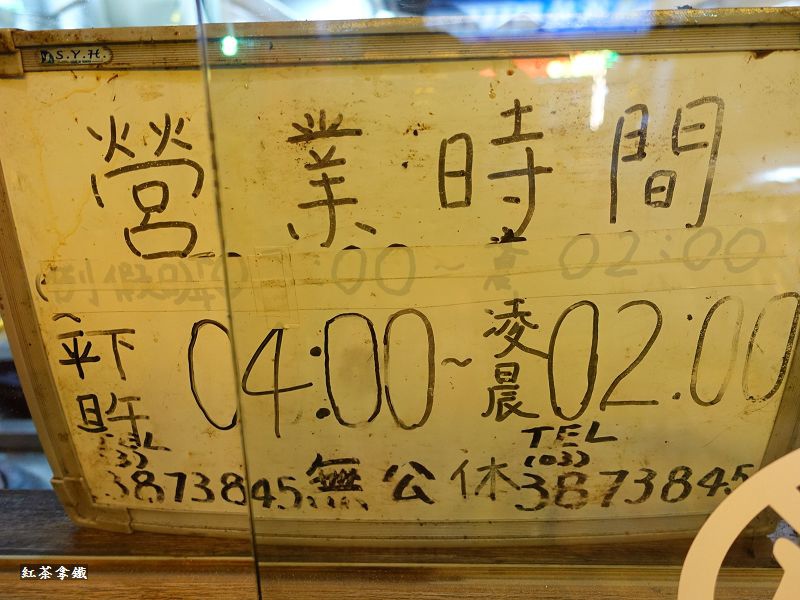 S.Y.H.
營業時間
:00~ 02:00
平日下午 04:00~凌晨02:00
TEL (03) 3873845 無公休 TEL (03) 3873845
紅茶拿鐵